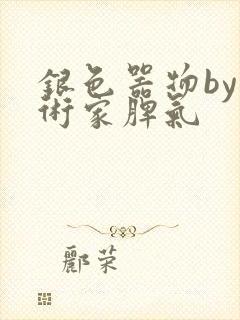 銀色器物by
術家脾氣
酈荣